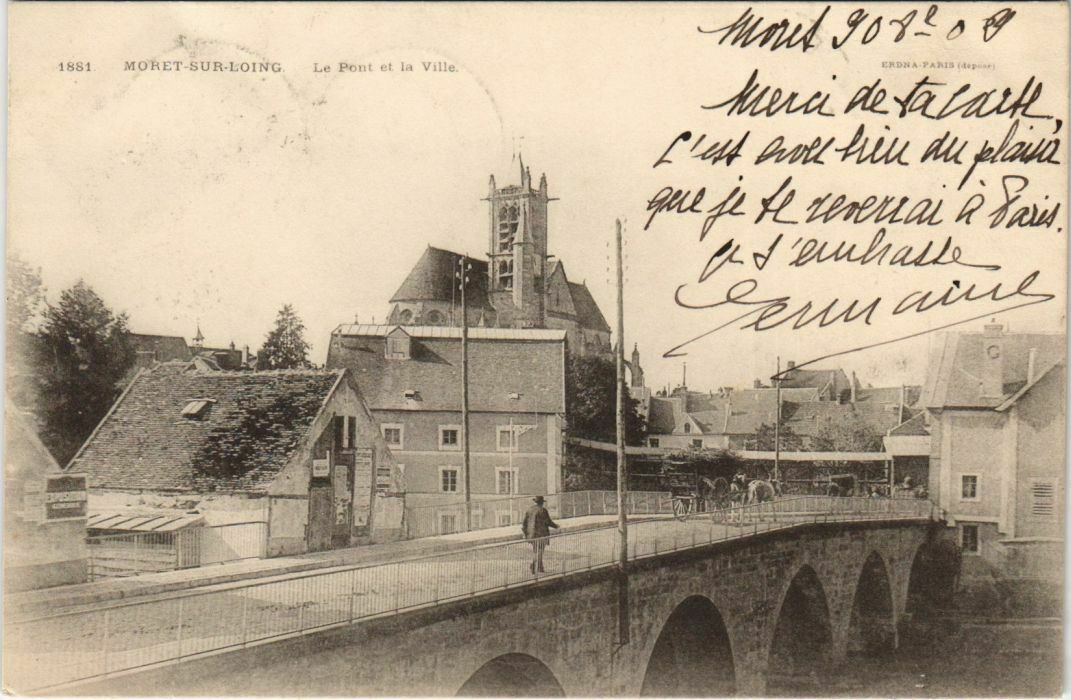 1881. MORET-SUR-LOING. Le Pont et la Ville.
ERDNA-PARIS (déposé)
Moret 9 08re 09
Merci de ta carte,
c'est avec bien du plaisir
que je te reverrai à Paris.
je t'embrasse
Germaine